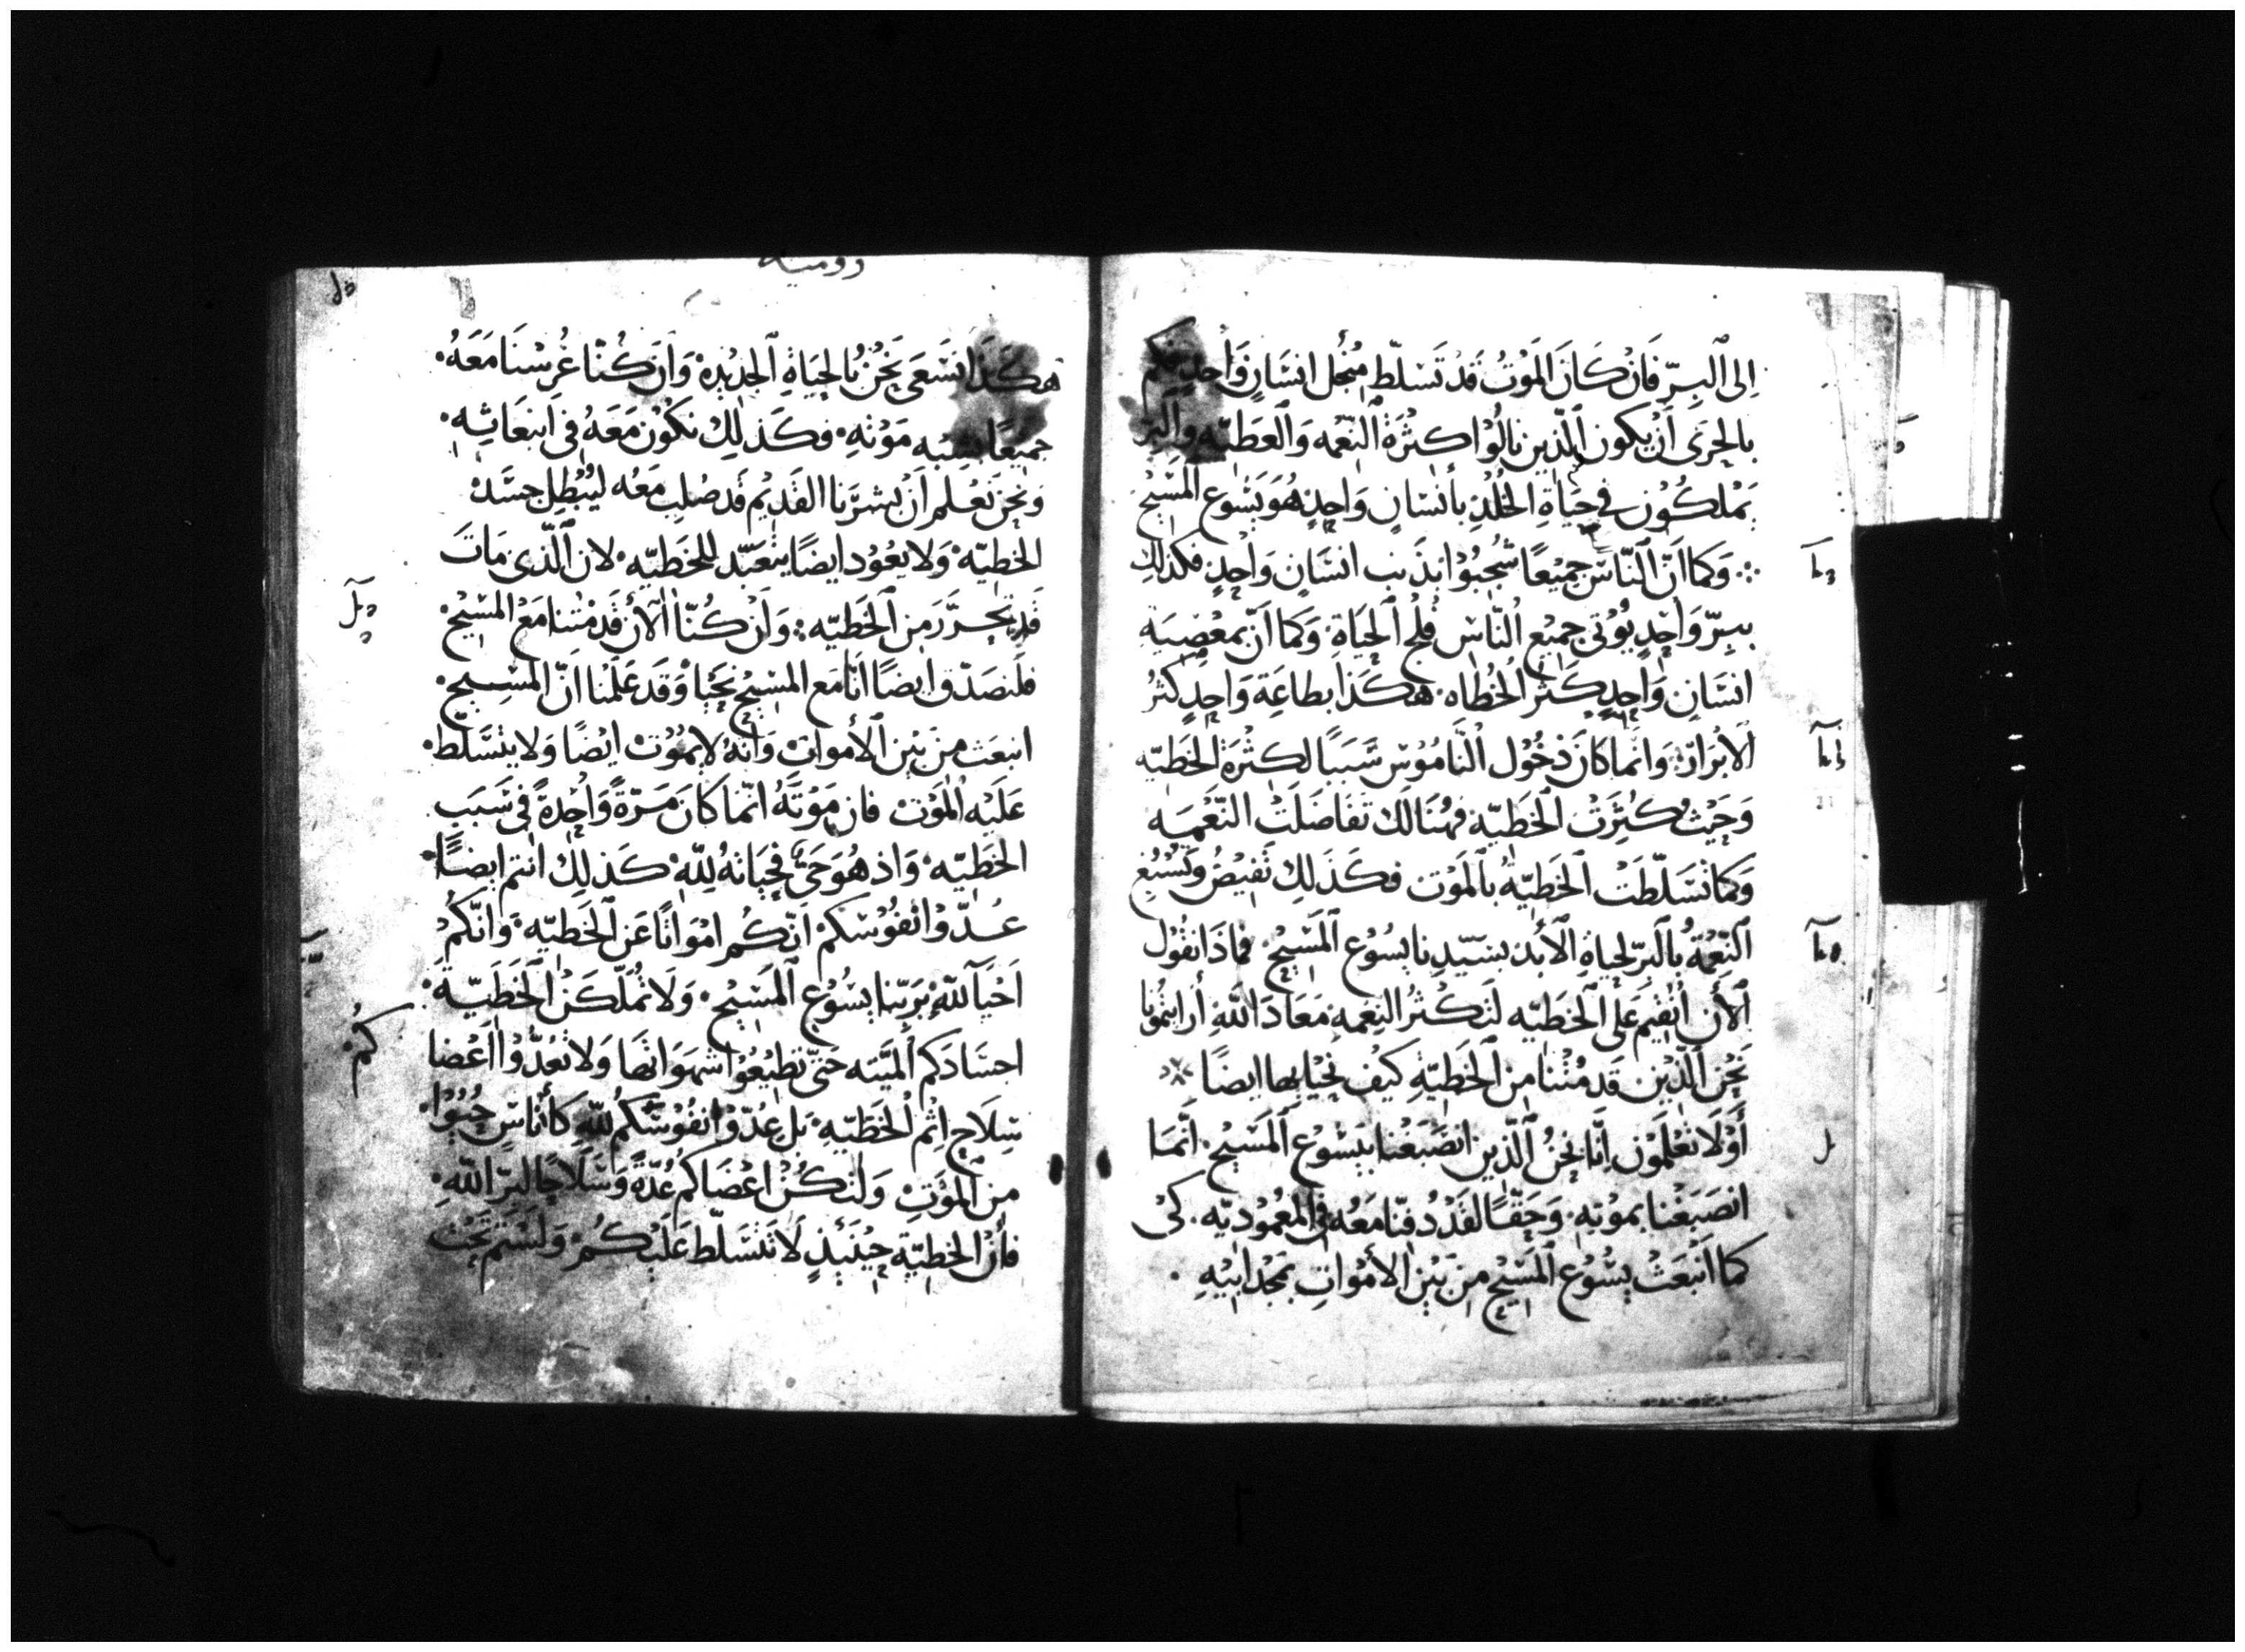 الى ٱلبِرّ فَانْ كَانَ المَوْتُ قَدْ تَسَلّط مِنْ أجل انسَانٍ وَاْحِدٍ فكم
بالحرَى اَنْ يكون ٱلّذين نالُوْا كثْرَةْ ٱلنّعْمه وَٱلْعَطيّه وٱلبِرّ
يَمْلكُوْن في حَيَاةِ الخُلْدِ بأنْسَانٍ وَاحِدٍ هُوَ يَسُوع المَسِّيْح
وَكما انَّ ٱلنّاسَ جمِيْعًا شُجِبُوْا بذَنب انسَانٍ وَاحِدٍ فكذلك
ببِرّ وَاحِدٍ يُوْتى جمِيْع ٱلنّاس فلج ٱلحَيَاة وَكما انّ بمعْصِيَه
انسَانٍ وَاحِدٍ كَثُر الخُطاه هكَذا بطاعَة وَاحِدٍ كثرُ
الابْرَارْ وَانّما كانَ دْخُوْل ٱلنّامُوْسْ سَبَبًا لكثْرَة الخطيّه
وَحَيْثُ كثُرَتْ ٱلخَطيّه فهُنَالك تفَاضَلَتْ النّعْمَه
وَكما تسَلّطَتْ ٱلخَطيّهُ بٱلمَوْت فكَذَلك تَفيْضُ وتسْبُغ
ٱلنّعْمَةُ بٱلبرّ لحياةِ ٱلأَبدْ بسَيّدنا يسُوْع ٱلمَسِّيْحْ فمَاذَا نقُوْل
ٱلأن اَنُقيْم عَلى ٱلخطيّه لتكْثُر النِعْمه مَعَادَ اللّهِ أرايتمُوْنا
نَحْن ٱلّذْيْن قد مُتْنا مِن ٱلخَطيّهِ كيْف نَحْيَا بهَا ايضًا
أَوْلَا تعْلمَوْن انَّا نحْنُ ٱلّذين انصَبَغْنا بيَسُوْع ٱلمَسِيْحْ انّمَا
انصَبَغْنا بموْتهِ وَحَقّاً لقَدْ دُفِنّا مَعَه في المعْمُوْديّه كىْ
كما اَنْبَعَثْ يسُوْع ٱلمَسِيْح مِن بَيْنِ الأمْوَاتِ بمَجْد ابيْهِ
روميه
هكَذَا نسْعَى نَحْنُ بٱلحَيَاةِ ٱلجدِيْدِه وَاَن كُنّا غُرسْنَا مَعَهُ
جميْعًا بشبْه مَوْتهِ فكَذلِكْ نكُوْن مَعَهُ في اَنبعَاثِهِ
وَنحن نَعْلم اَنْ بَشرَنا القَدِيْم قَد صُلبَ مَعَه ليُبْطل جسَّد
الخطيّهْ وَلا يعُوْد ايضًا يتعَبّد للخطيّه لان ٱلّذى مَاتَ
قَد تحرَّر مِن ٱلخَطيّه وَاَنْ كُنّا ٱلأنْ قَد مُتْنا مَع المسَيْح
فلنصَدّق ايضًا انّا مَع المسِيْح نَحْيَا وَقَد عَلمْنا انّ المسِيْح
انبعَث مِنْ بَيْن ٱلأموَاتْ وَانّهُ لا يمُوْتْ ايْضًا وَلا يتسَّلّط
عَلَيْه ٱلمَوْتْ فان مَوْتَهُ انّما كانَ مَرّةً وَاحِدةً في سَبَب
الخَطيّه وَاذ هُوَ حَيّ فحَيَاتهُ للّهْ كَذلِكْ انْتم ايضًا
عُدّوْا نفُوْسَكمْ اَنّكُم امْوَاتًا عَن ٱلخَطيّه وَانّكُمْ
اَحْيَآ للّهْ بَربّنا يسُوْع ٱلمَسَيْح وَلَا تُملّكَنْ الخَطيّة
كُمْ
اجسَادَكم ٱلمَيّته حَتّى تطيْعُوْا شهَوَاتها وَلا تعُدُّوْا اَعْضا
سِلَاح اثْم ٱلخَطيّه بَل عِدّوْا نفُوْسَّكمُ للّهِ كأُنَاسٍ حَيُوْا
مِن المَوْتِ وَلتكُنْ اعْضَاكمُ عُدّةً وَسَلَاحًا لبرّ اللّهِ
فأَنْ الخطيّة حِيْنَئِذٍ لَا تتسَّلّط عَلَيْكُمْ وَلَسْتم تَحْت